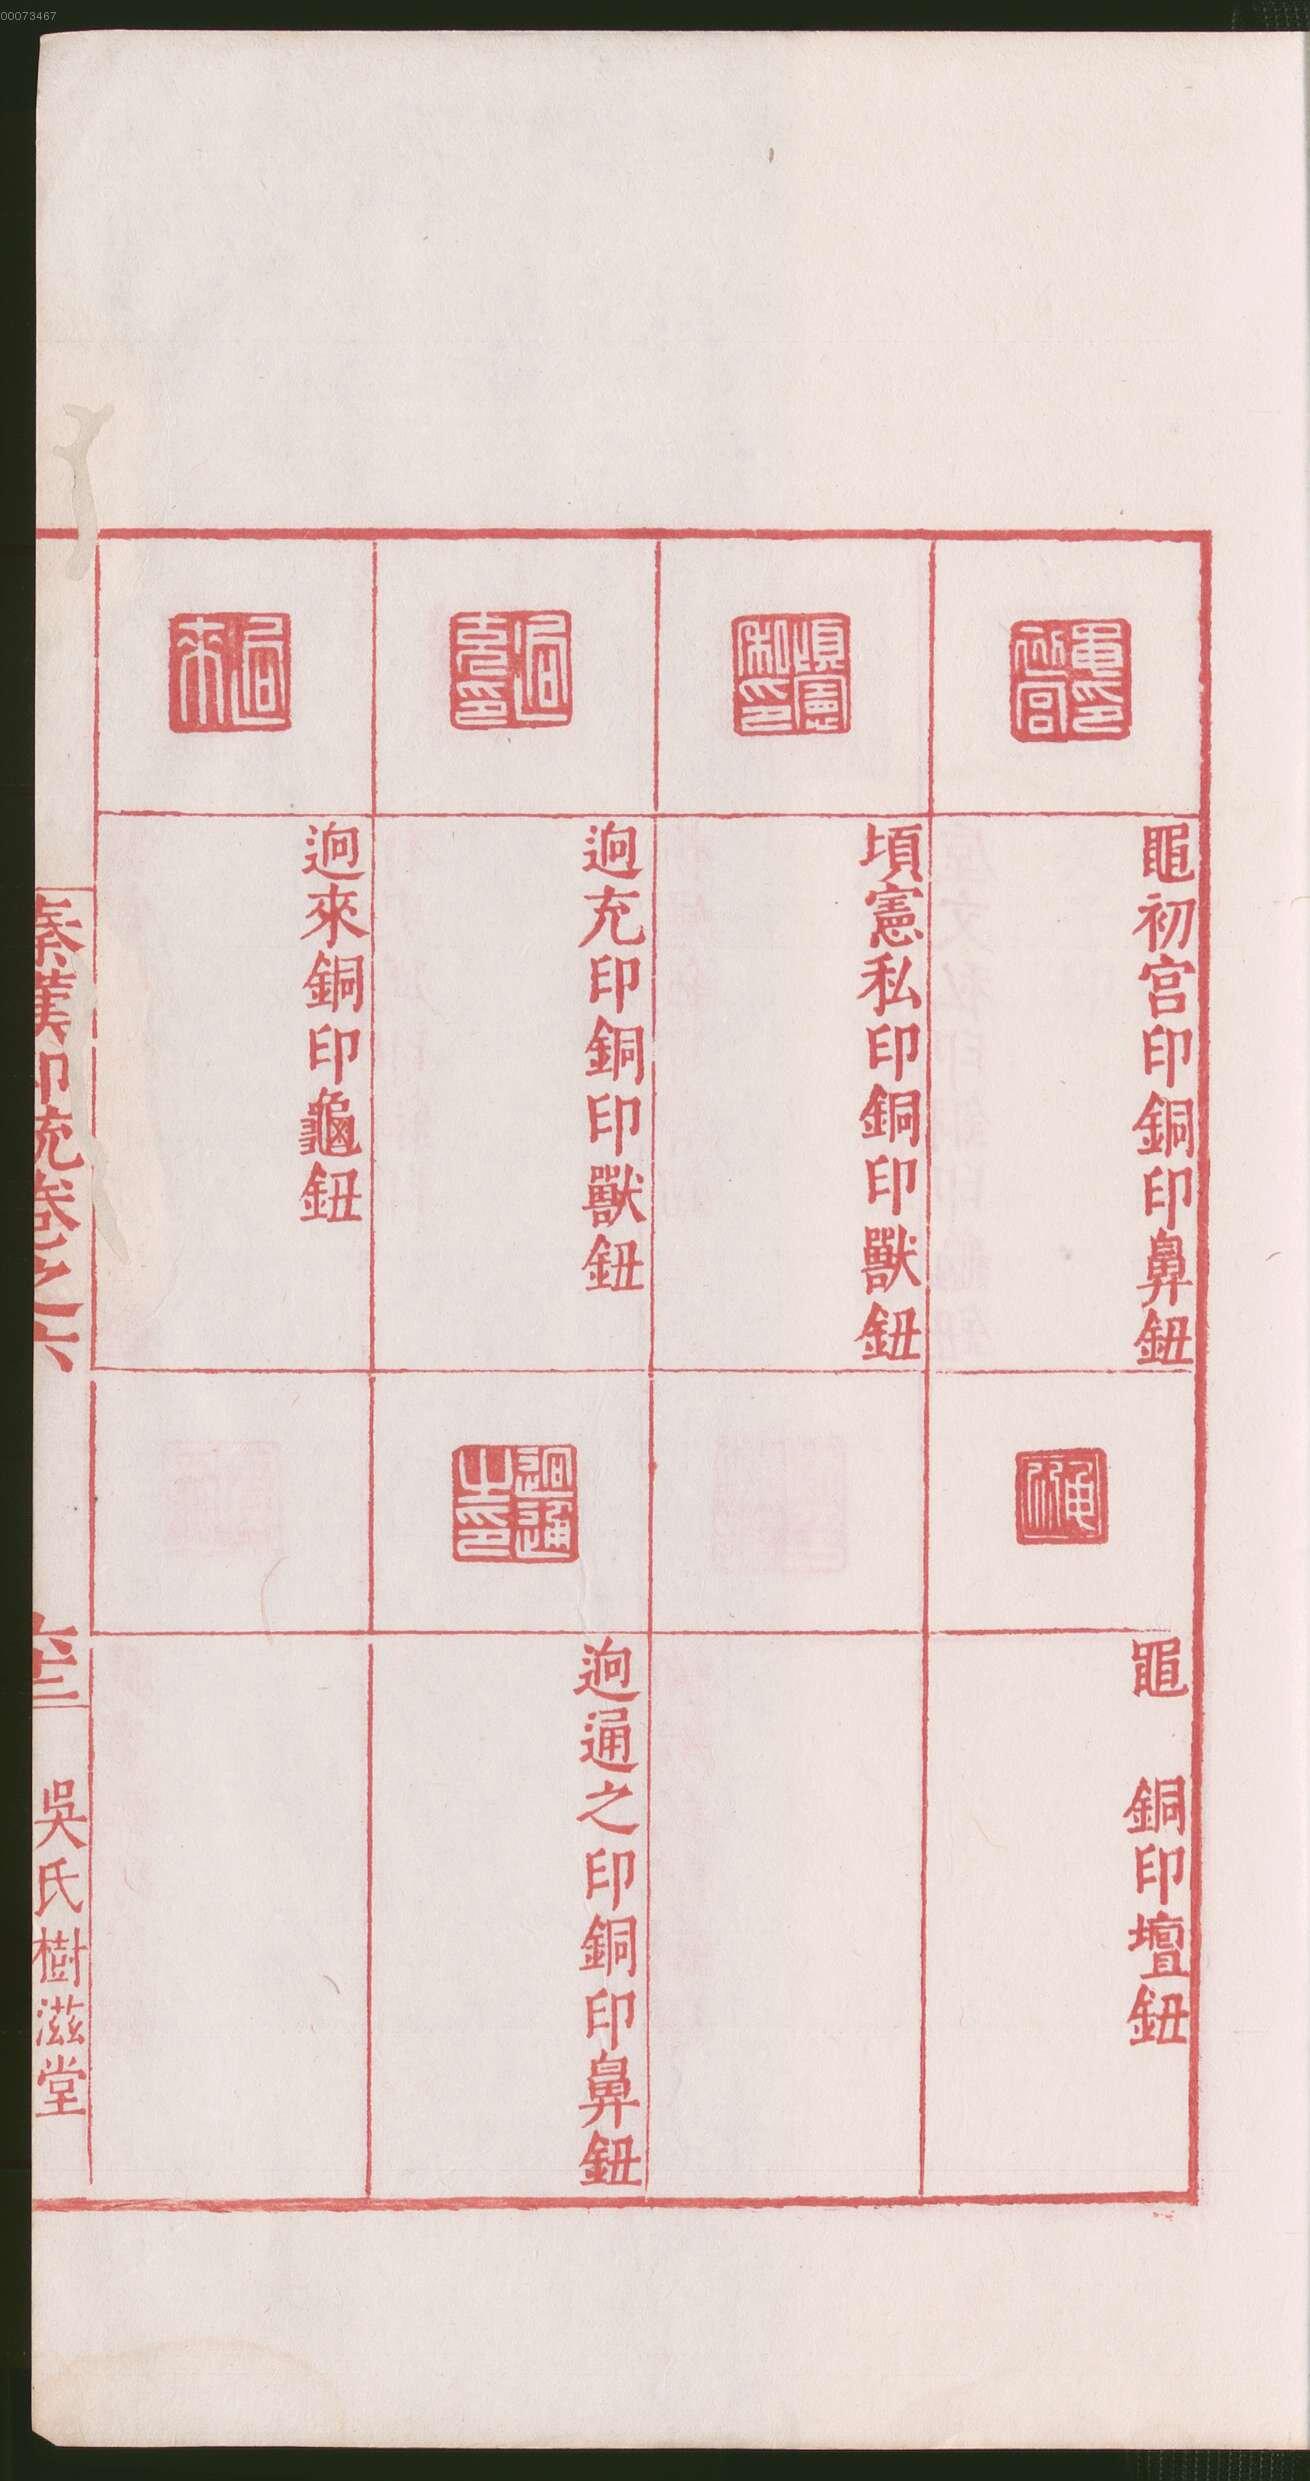 00073467
黽初宮印銅印鼻鈕
黽　銅印壇鈕
項憲私印銅印獸鈕
逈充印銅印獸鈕
逈通之印銅印鼻鈕
逈來銅印龜鈕
秦漢印統卷之六
吳氏樹滋堂